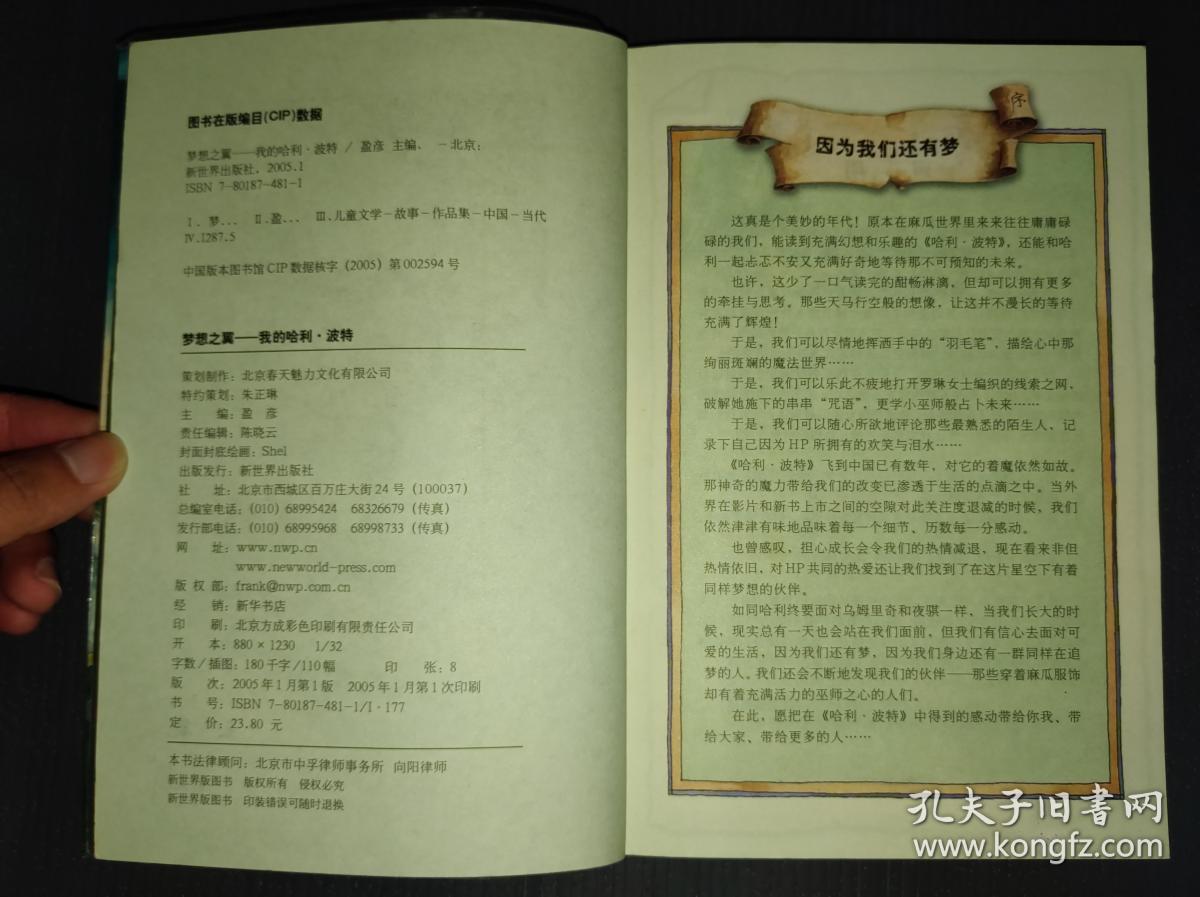 图书在版编目(CIP)数据
梦想之翼——我的哈利·波特 / 盈彦 主编、 -北京:
新世界出版社, 2005.1
ISBN 7-80187-481-1
Ⅰ. 梦... Ⅱ.盈... Ⅲ.儿童文学-故事-作品集-中国-当代
Ⅳ.I287.5
中国版本图书馆CIP数据核字(2005)第002594号
梦想之翼——我的哈利·波特
策划制作:北京春天魅力文化有限公司
特约策划:朱正琳
主 编:盈 彦
责任编辑:陈晓云
封面封底绘画:Shel
出版发行:新世界出版社
社 址:北京市西城区百万庄大街24号(100037)
总编室电话:(010) 68995424 68326679(传真)
发行部电话:(010) 68995968 68998733(传真)
网 址:www.nwp.cn
www.newworld-press.com
版 权 部:frank@nwp.com.cn
经 销:新华书店
印 刷:北京方成彩色印刷有限责任公司
开 本:880×1230 1/32
字数/插图:180千字/110幅 印 张:8
版 次:2005年1月第1版 2005年1月第1次印刷
书 号:ISBN 7-80187-481-1/I·177
定 价:23.80 元
本书法律顾问:北京市中孚律师事务所 向阳律师
新世界版图书 版权所有 侵权必究
新世界版图书 印装错误可随时退换
序
因为我们还有梦
这真是个美妙的年代!原本在麻瓜世界里来来往往庸庸碌
碌的我们,能读到充满幻想和乐趣的《哈利·波特》,还能和哈
利一起忐忑不安又充满好奇地等待那不可预知的未来。
也许,这少了一口气读完的酣畅淋漓,但却可以拥有更多
的牵挂与思考。那些天马行空般的想像,让这并不漫长的等待
充满了辉煌!
于是,我们可以尽情地挥洒手中的“羽毛笔”,描绘心中那
绚丽斑斓的魔法世界……
于是,我们可以乐此不疲地打开罗琳女士编织的线索之网,
破解她施下的串串“咒语”,更学小巫师般占卜未来……
于是,我们可以随心所欲地评论那些最熟悉的陌生人、记
录下自己因为HP所拥有的欢笑与泪水……
《哈利·波特》飞到中国已有数年,对它的着魔依然如故。
那神奇的魔力带给我们的改变已渗透于生活的点滴之中。当外
界在影片和新书上市之间的空隙对此关注度退减的时候,我们
依然津津有味地品味着每一个细节、历数每一分感动。
也曾感叹,担心成长会令我们的热情减退,现在看来非但
热情依旧,对HP共同的热爱还让我们找到了在这片星空下有着
同样梦想的伙伴。
如同哈利终要面对乌姆里奇和夜骐一样,当我们长大的时
候,现实总有一天也会站在我们面前,但我们有信心去面对可
爱的生活,因为我们还有梦,因为我们身边还有一群同样在追
梦的人。我们还会不断地发现我们的伙伴——那些穿着麻瓜服饰
却有着充满活力的巫师之心的人们。
在此,愿把在《哈利·波特》中得到的感动带给你我、带
给大家、带给更多的人……
孔夫子旧书网
www.kongfz.com